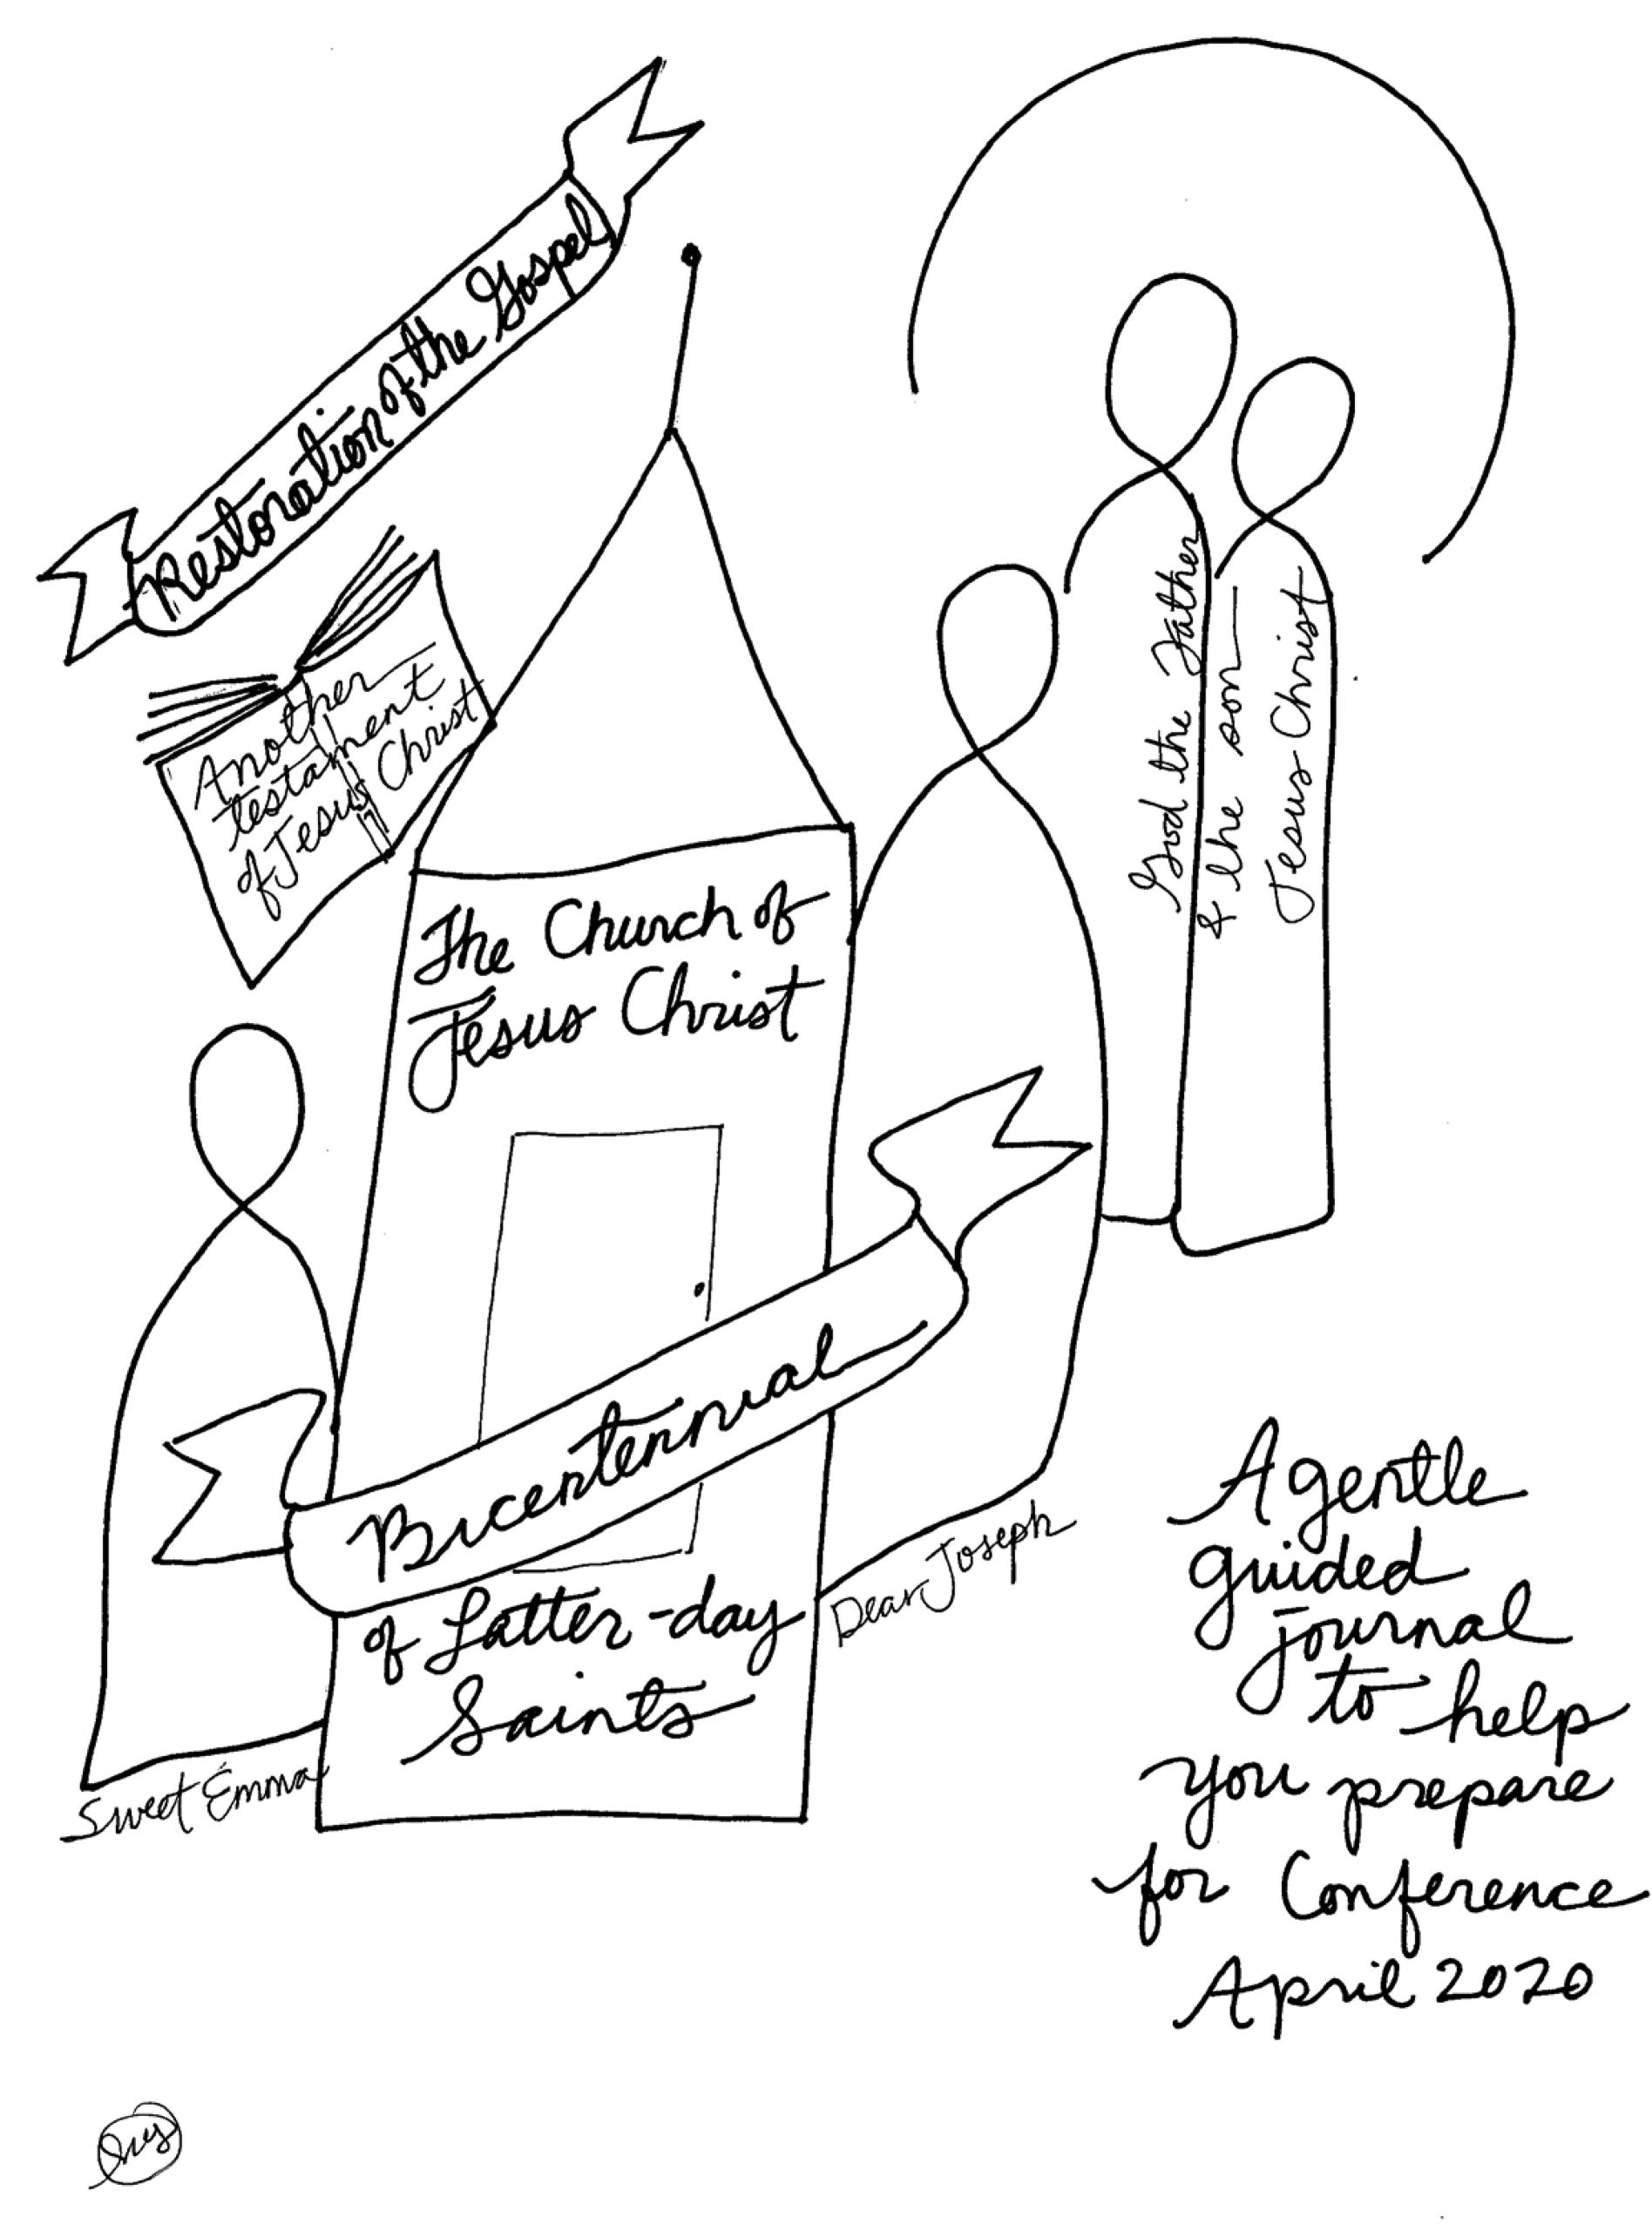 Restoration of the Gospel
Another
testament
of Jesus Christ
God the Father
& the son
Jesus Christ
The Church of
Jesus Christ
Bicentennial
of Latter-day
Saints
Sweet Emma
Dear Joseph
A gentle
guided
journal
to help
you prepare
for Conference
April 2020